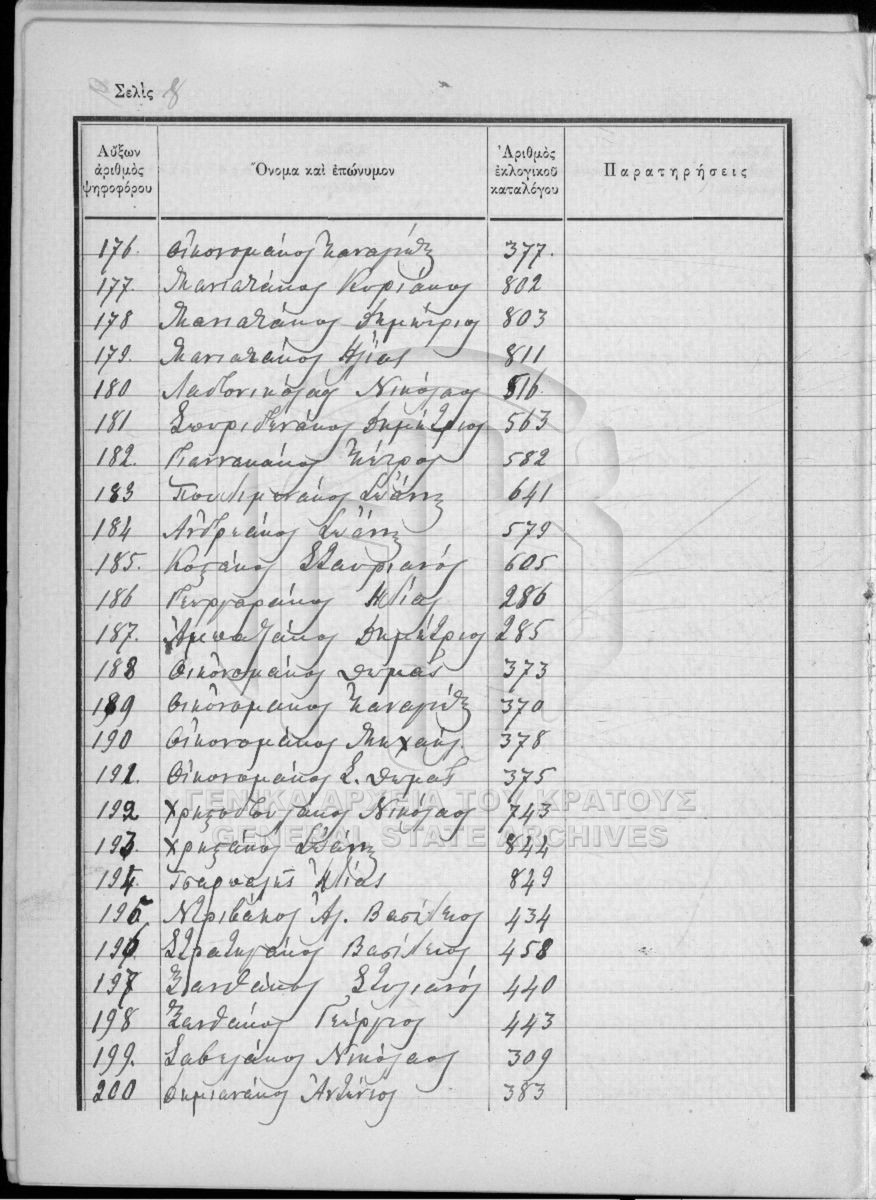 Σελὶς 8
Αὔξων ἀριθμὸς ψηφοφόρου Ὄνομα καὶ ἐπώνυμον Ἀριθμὸς ἐκλογικοῦ καταλόγου Παρατηρήσεις
176. Οἰκονομάκος Παναγιώτης 377.
177. Μανιατάκος Κυριάκος 802
178 Μανιατάκος Δημήτριος 803
179. Μανιατάκος Ηλίας 811
180 Νικόλαος 516
181 Σπυριδενάκος Δημήτριος 563
182. Γιαννακάκος Πέτρος 582
183 Ἰωάννης 641
184 Ἀνδρεάκος Ἰωάννης 579
185. Κοζάκος Σταυριανός 605
186 Γεωργαράκος Ηλίας 286
187. Δημήτριος 285
188 Οἰκονομάκος Θωμάς 373
189 Οἰκονομάκος Παναγιώτης 370
190 Οἰκονομάκος Μιχαήλ 378
191. Οἰκονομάκος Σ. Θωμας 375
192 Χρηστουλάκος Νικόλαος 743
193. Χρηστάκος Ἰωάννης 844
194. Ἠλίας 849
195. Βασίλειος 434
196. Στρατηγάκος Βασίλειος 458
197 Ξανθάκος Στυλιανός 440
198 Ξανθάκος Γεώργιος 443
199. Σαβελάκος Νικόλαος 309
200 Δημιανάκος Ἀντώνιος 383
ΓΕΝΙΚΑ ΑΡΧΕΙΑ ΤΟΥ ΚΡΑΤΟΥΣ
GENERAL STATE ARCHIVES